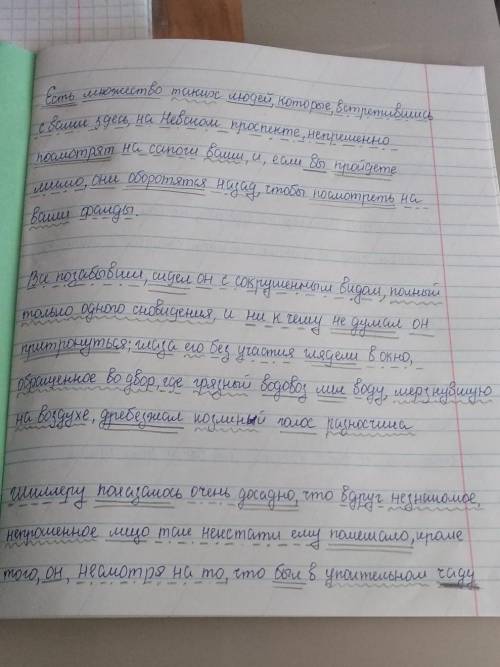 Есть множество таких людей, которые, встретившись
с вами здесь, на Невском проспекте, непременно
посмотрят на сапоги ваши, и, если вы пройдете
мимо, они оборотятся назад, чтобы посмотреть на
ваши фалды.
Всё позабывши, сидел он с сокрушенным видом, полный
только одного сновидения, и ни к чему не думал он
притронуться; глаза его без участия глядели в окно,
обращенное во двор, где грязный водовоз лил воду, мерзнувшую
на воздухе, дребезжал козлиный голос разносчика
Шиллеру показалось очень досадно, что вдруг незнакомое,
непрошенное лицо так некстати ему помешало, кроме
того, он, несмотря на то, что был в упоительном чаду